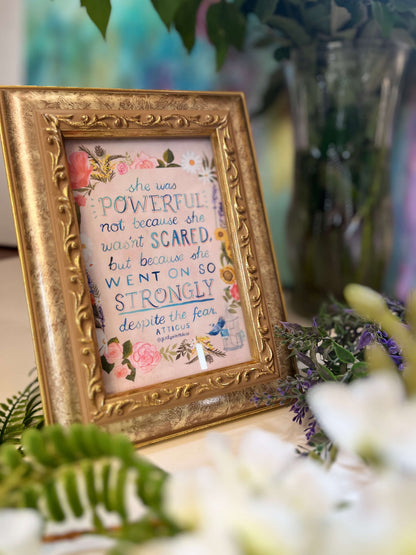 she was
POWERFUL
not because she
wasn't SCARED,
but because she
WENT ON SO
STRONGLY
despite the fear.
ATTICUS